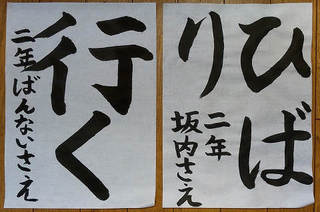 行く
二年ばんないさえ
ひば
り
二年
坂内さえ